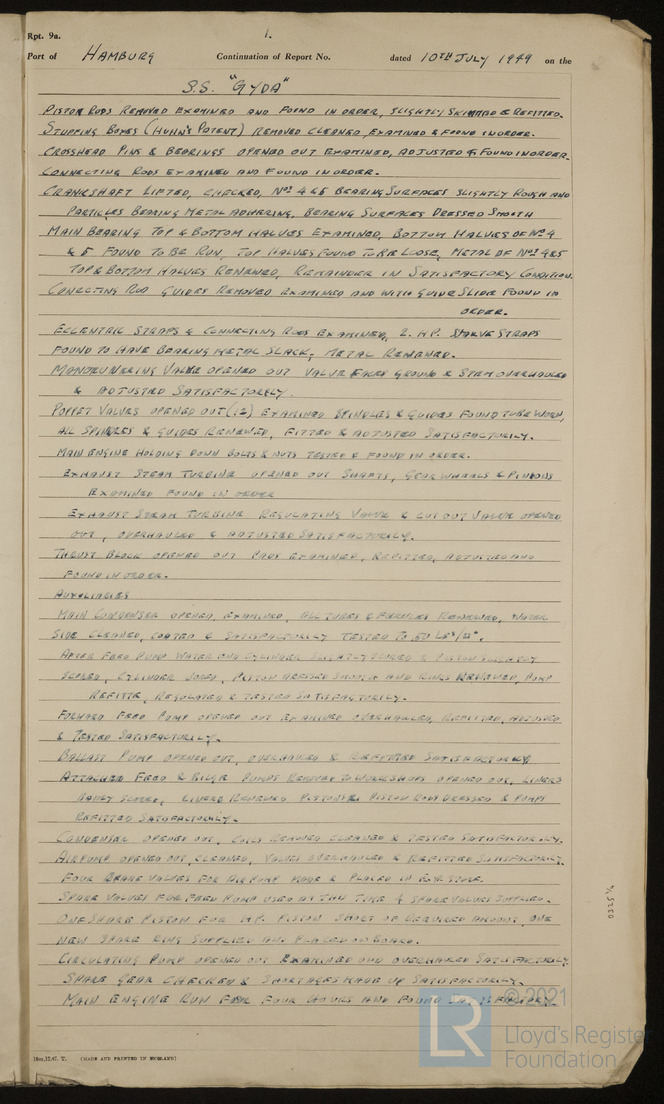 Rpt. 9a.
1.
Port of HAMBURG Continuation of Report No. dated 10TH JULY 1949 on the
S.S. "GYDA"
PISTON RODS REMOVED EXAMINED AND FOUND IN ORDER, SLIGHTLY SKIMMED & REFITTED.
STUFFING BOXES (HUHN'S PATENT) REMOVED CLEANED, EXAMINED & FOUND IN ORDER.
CROSSHEAD PINS & BEARINGS OPENED OUT EXAMINED, ADJUSTED & FOUND IN ORDER.
CONNECTING RODS EXAMINED AND FOUND IN ORDER.
CRANKSHAFT LIFTED, CHECKED, Nos 4 & 5 BEARING SURFACES SLIGHTLY ROUGH AND
PARTICLES BEARING METAL ADHERING, BEARING SURFACES DRESSED SMOOTH
MAIN BEARING TOP & BOTTOM HALVES EXAMINED, BOTTOM HALVES OF No 4
& 5 FOUND TO BE RUN, TOP HALVES FOUND TO BE LOOSE, METAL OF Nos 4 & 5
TOP & BOTTOM HALVES RENEWED, REMAINDER IN SATISFACTORY CONDITION.
CONECTING ROD GUIDES REMOVED EXAMINED AND WITH GUIDE SLIDE FOUND IN
ORDER.
ECCENTRIC STRAPS & CONNECTING RODS EXAMINED, 2. H.P. VALVE STRAPS
FOUND TO HAVE BEARING METAL SLACK, METAL RENEWED.
MANOEUVERING VALVE OPENED OUT VALVE FACES GROUND & STEM OVERHAULED
& ADJUSTED SATISFACTORILY.
POPPET VALVES OPENED OUT (12) EXAMINED SPINDLES & GUIDES FOUND TO BE WORN,
ALL SPINDLES & GUIDES RENEWED, FITTED & ADJUSTED SATISFACTORILY.
MAIN ENGINE HOLDING DOWN BOLTS & NUTS TESTED & FOUND IN ORDER.
EXHAUST STEAM TURBINE OPENED OUT SHAFTS, GEAR WHEELS & PINIONS
EXAMINED FOUND IN ORDER
EXHAUST STEAM TURBINE REGULATING VALVE & CUT OUT VALVE OPENED
OUT, OVERHAULED & ADJUSTED SATISFACTORILY.
THRUST BLOCK OPENED OUT PADS EXAMINED, REFITTED, ADJUSTED AND
FOUND IN ORDER.
AUXILIARIES
MAIN CONDENSER OPENED, EXAMINED, ALL TUBES & FERRULES RENEWED, WATER
SIDE CLEANED, COATED & SATISFACTORILY TESTED TO LBS/□".
AFTER FEED PUMP WATER END CYLINDER SLIGHTLY SCORED & PISTON SLIGHTLY
SCORED, CYLINDER BORED, PISTON DRESSED SMOOTH AND RINGS RENEWED, PUMP
REFITTED, REGULATED & TESTED SATISFACTORILY.
FORWARD FEED PUMP OPENED OUT EXAMINED OVERHAULED, REFITTED, ADJUSTED
& TESTED SATISFACTORILY.
BALLAST PUMP OPENED OUT, OVERHAULED & REFITTED SATISFACTORILY.
ATTACHED FEED & BILGE PUMPS REMOVED TO WORKSHOPS OPENED OUT, LINERS
BADLY SCORED, LINERS RENEWED PISTONS & PISTON RODS DRESSED & PUMPS
REFITTED SATISFACTORILY.
CONDENSER OPENED OUT, COILS REMOVED CLEANED & TESTED SATISFACTORILY.
AIR PUMP OPENED OUT, CLEANED, VALVES OVERHAULED & REFITTED SATISFACTORILY.
FOUR SPARE VALVES FOR AIR PUMP MADE & PLACED IN E.R. STORE.
SPARE VALVES FOR FEED PUMP USED AT THIS TIME & SPARE VALVES SUPPLIED.
ONE SPARE PISTON FOR H.P. PISTON SHORT OF REQUIRED AMOUNT, ONE
NEW SPARE RING SUPPLIED AND PLACED ON BOARD.
CIRCULATING PUMP OPENED OUT EXAMINED AND OVERHAULED SATISFACTORILY.
SPARE GEAR CHECKED & SHORTAGES MADE UP SATISFACTORILY.
MAIN ENGINE RUN FOR FOUR HOURS AND FOUND SATISFACTORY.
0325 1/4
(MADE AND PRINTED IN ENGLAND)
© 2021
LR
Lloyd's Register
Foundation